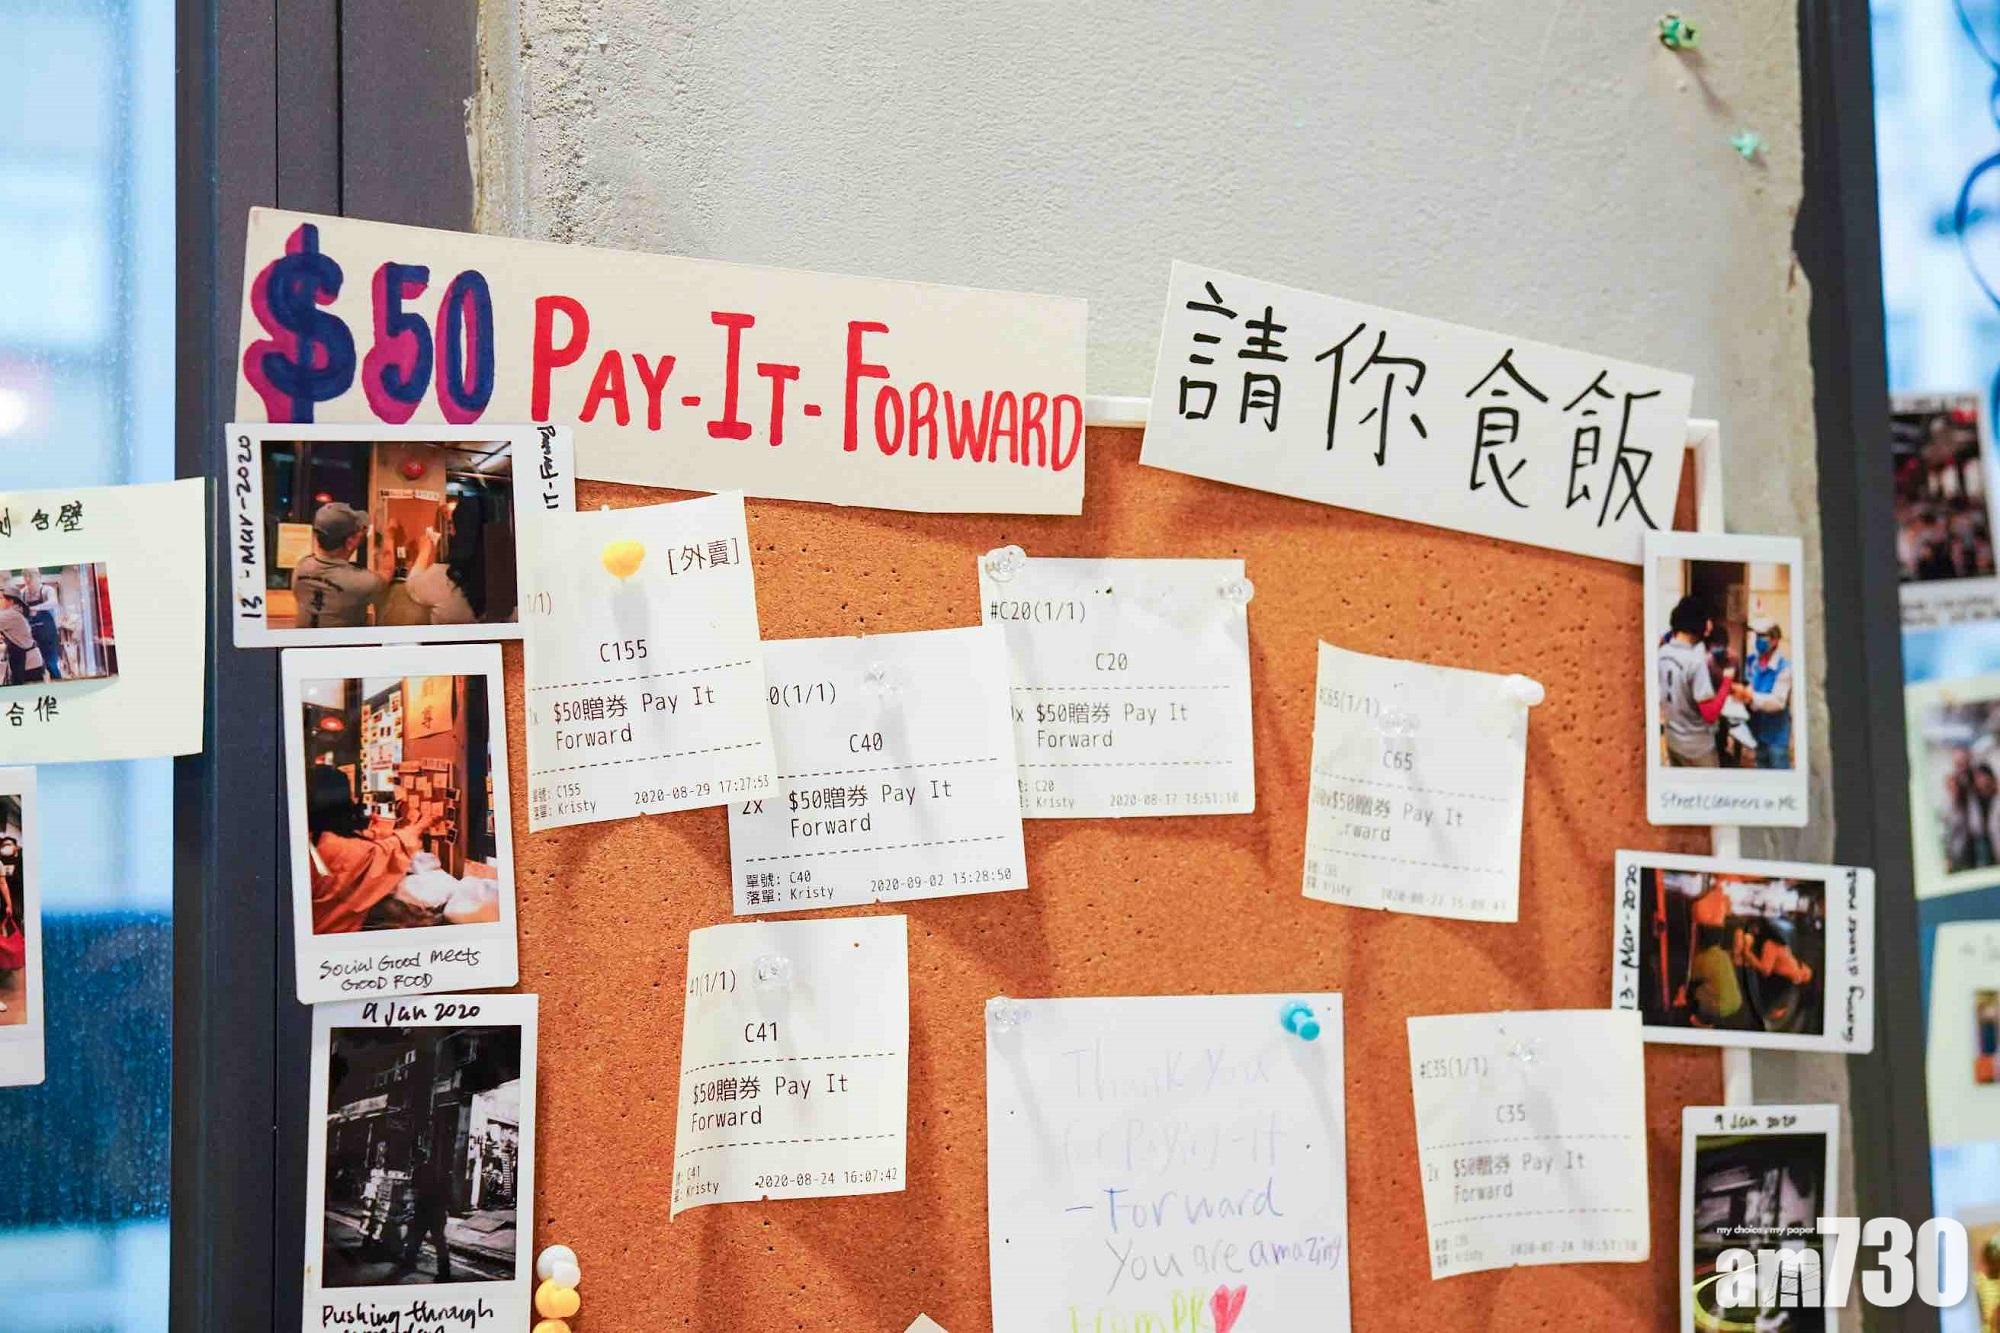 $50 PAY-IT-FORWARD
請你食飯
13-Mar-2020
[外賣]
1/1)
C155
$50贈券 Pay It
Forward
C155
Kristy 2020-08-29 17:27:53
0(1/1)
C40
2x $50贈券 Pay It
Forward
單號: C40
落單: Kristy 2020-09-02 13:28:50
#C20(1/1)
C20
x $50贈券 Pay It
Forward
C20
Kristy 2020-08-17 13:51:10
C65(1/1)
C65
$50贈券 Pay It
rward
Social Good meets
GOOD FOOD
9 Jan 2020
Pushing through
41(1/1)
C41
$50贈券 Pay It
Forward
C41
Kristy 2020-08-24 16:07:42
Thank You
for Paying-it
-Forward
You are amazing
#C35(1/1)
C35
2x $50贈券 Pay It
Forward
Street Cleaners in MK
13-Mar-2020
9 Jan 2020
合作
my choice . my paper
am730